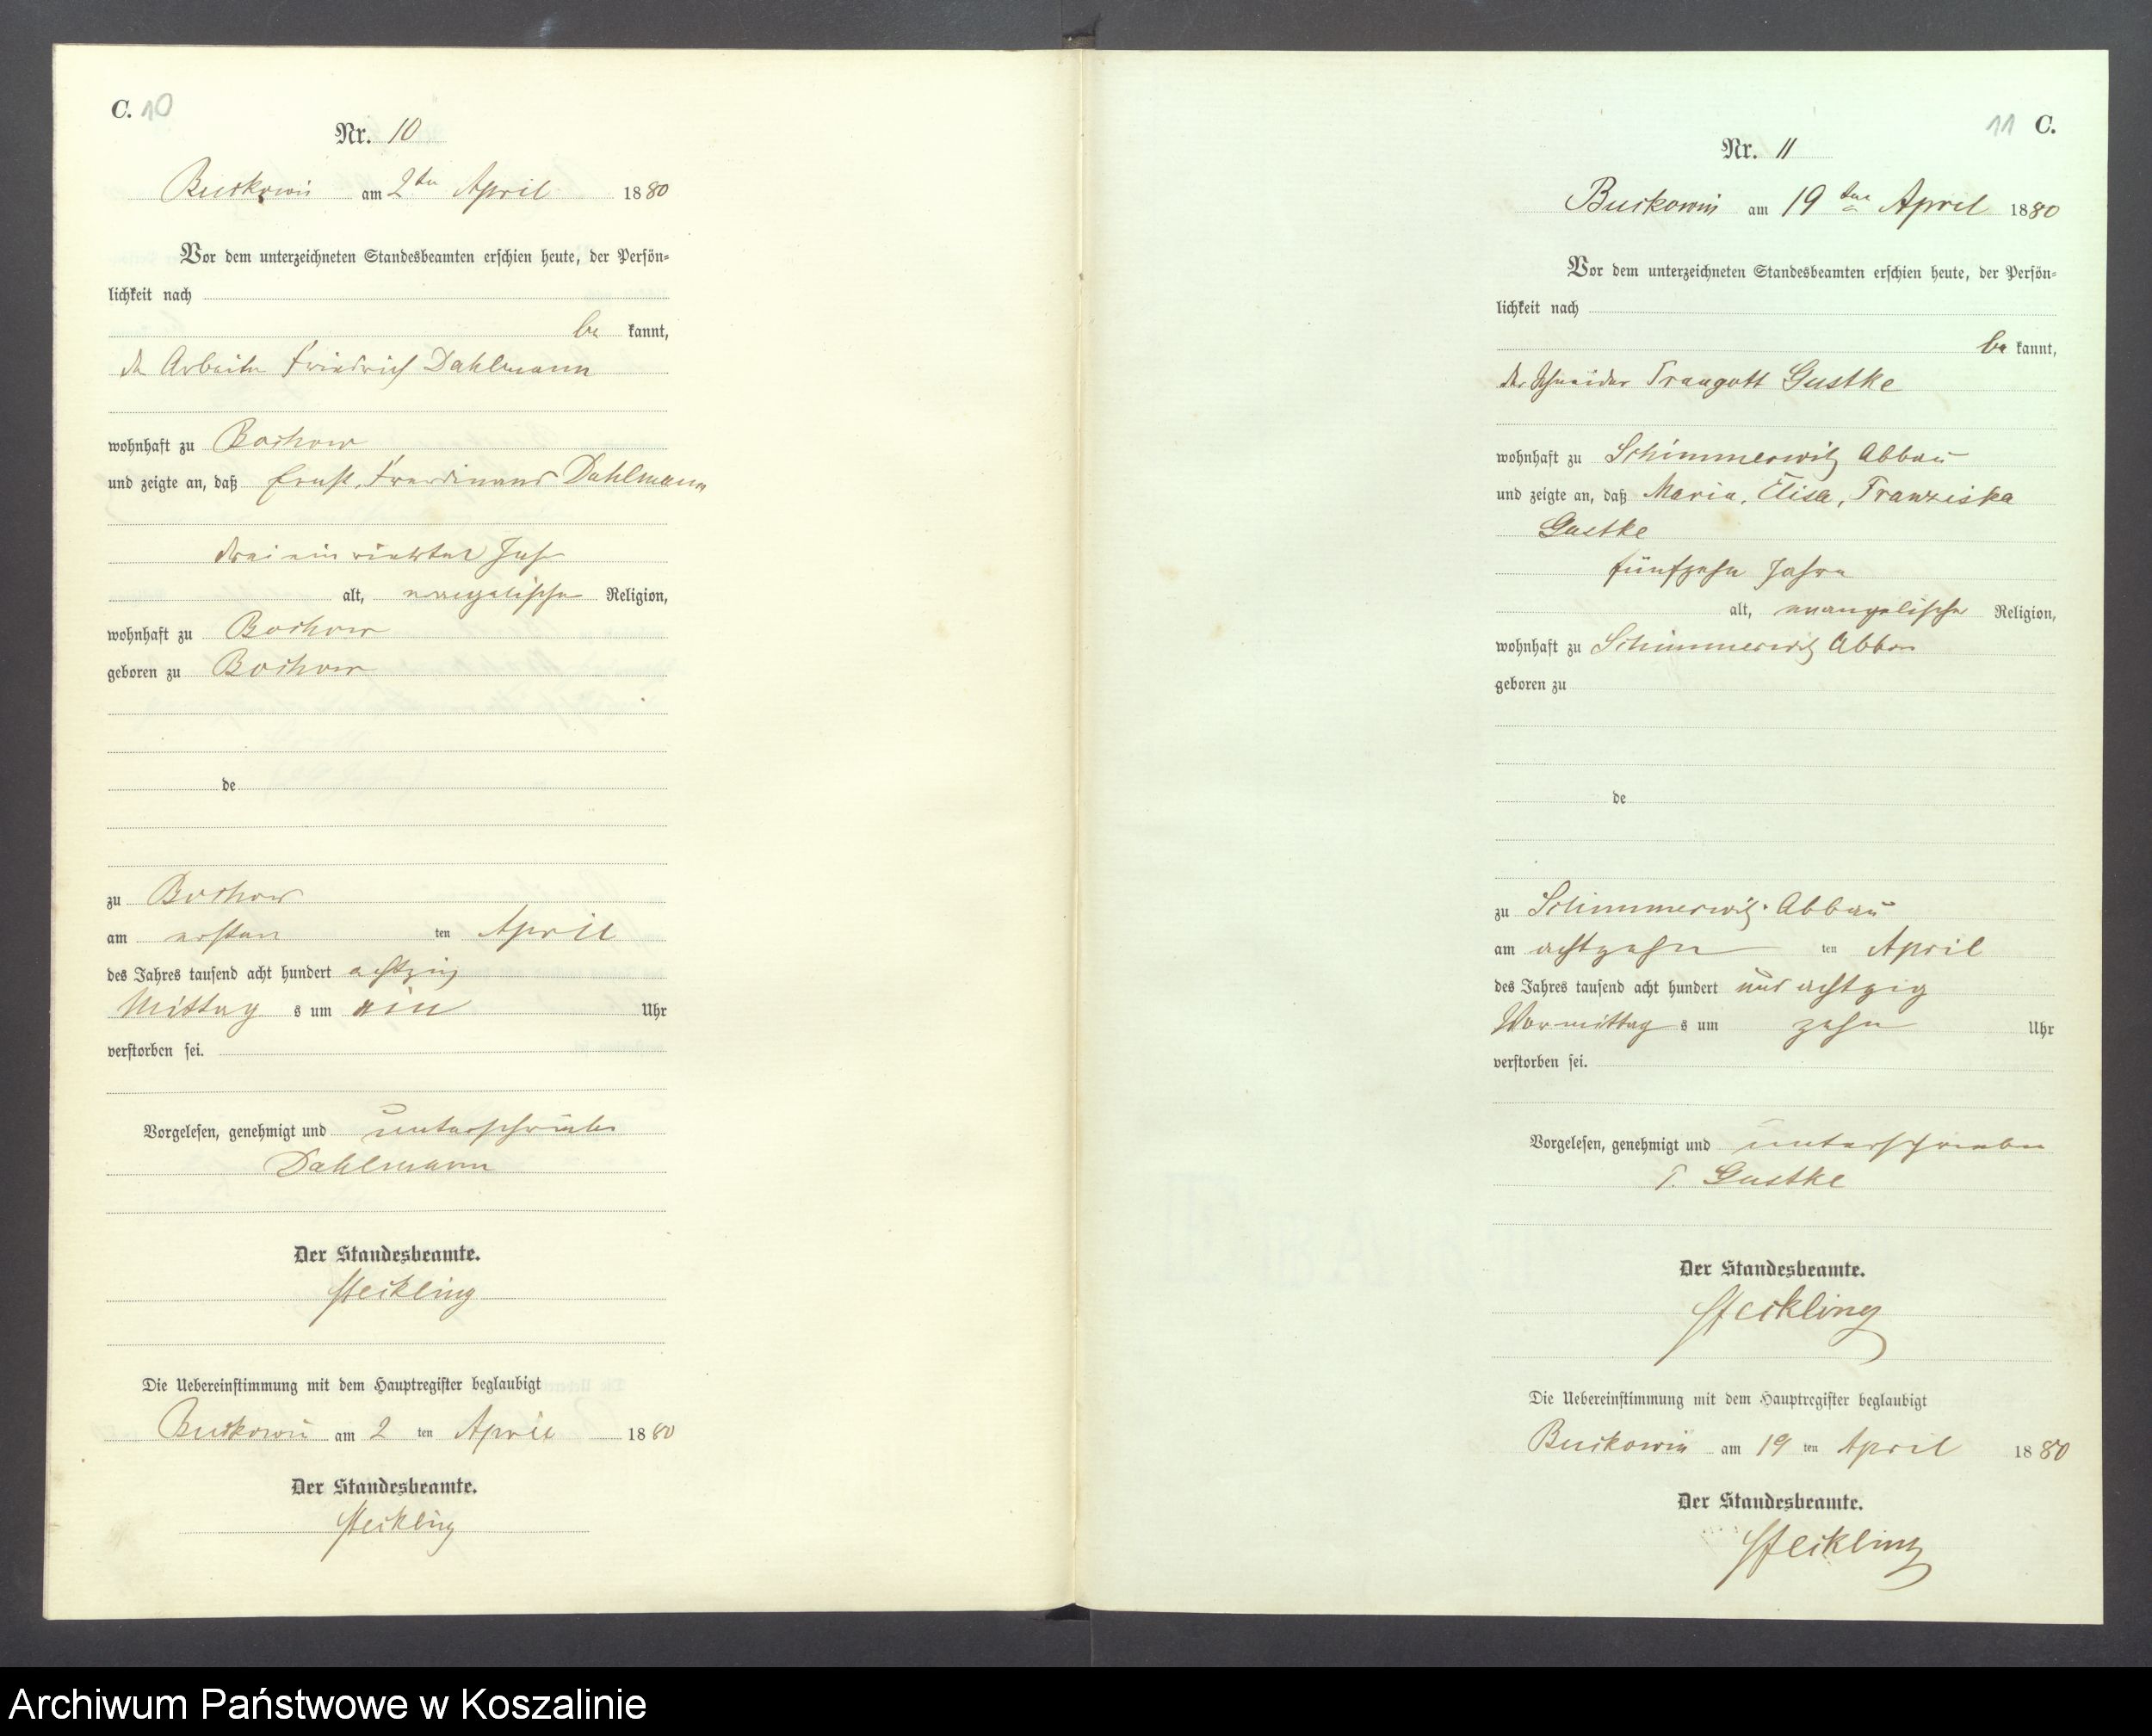 C. 10
Nr. 10
Buckowin am 2ten April 1880
Vor dem unterzeichneten Standesbeamten erschien heute, der Persön-
lichkeit nach
be kannt,
der Arbeiter Friedrich Dahlmann
wohnhaft zu Bochow
und zeigte an, daß Ernst, Ferdinand Dahlmann
drei ein viertel Jahr
alt, evangelischer Religion,
wohnhaft zu Bochow
geboren zu Bochow
de
zu Bochow
am ersten ten April
des Jahres tausend acht hundert achtzig
Mittag s um ein Uhr
verstorben sei.
Vorgelesen, genehmigt und unterschrieben
Dahlmann
Der Standesbeamte.
Steckling
Die Uebereinstimmung mit dem Hauptregister beglaubigt
Buckowin am 2 ten April 1880
Der Standesbeamte.
Steckling
11 C.
Nr. 11
Buckowin am 19ten April 1880
Vor dem unterzeichneten Standesbeamten erschien heute, der Persön-
lichkeit nach
be kannt,
der Schneider Traugott Gustke
wohnhaft zu Schimmerwitz Abbau
und zeigte an, daß Maria, Elisa, Franziska
Gustke
fünfzehn Jahre
alt, evangelischer Religion,
wohnhaft zu Schimmerwitz Abbau
geboren zu
de
zu Schimmerwitz Abbau
am achtzehn ten April
des Jahres tausend acht hundert und achtzig
Vormittag s um zehn Uhr
verstorben sei.
Vorgelesen, genehmigt und unterschrieben
T. Gustke
Der Standesbeamte.
Steckling
Die Uebereinstimmung mit dem Hauptregister beglaubigt
Buckowin am 19 ten April 1880
Der Standesbeamte.
Steckling
Archiwum Państwowe w Koszalinie